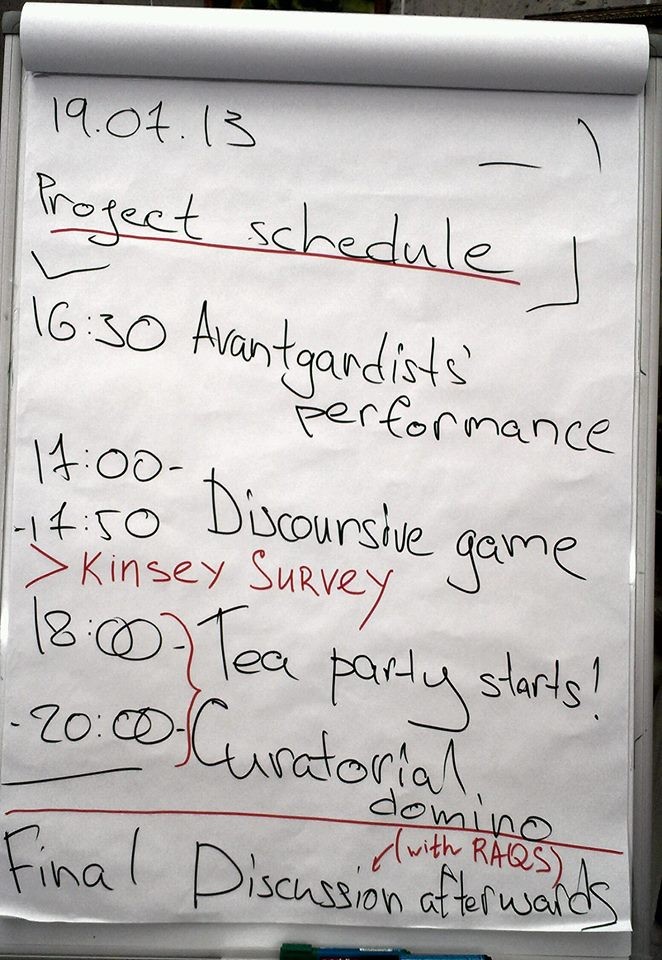 19.07.13
Project schedule
16:30 Avantgardists'
performance
17:00-
-17:50 Discoursive game
> Kinsey Survey
18:00- Tea party starts!
-20:00- Curatorial
domino
(with RAQS)
Final Discussion afterwards